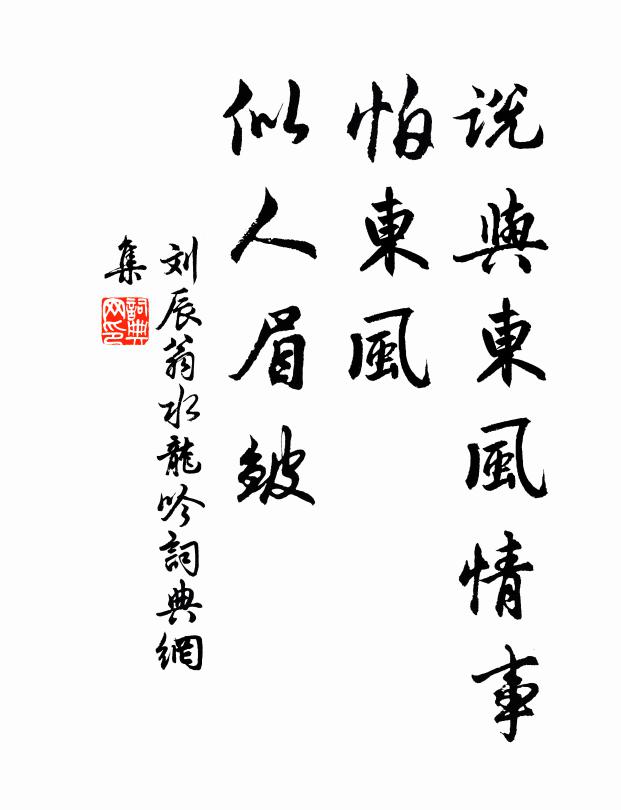 说與東風情事
怕東風
似人眉皴
刘辰翁水龍吟詞典網
集
詞典网印